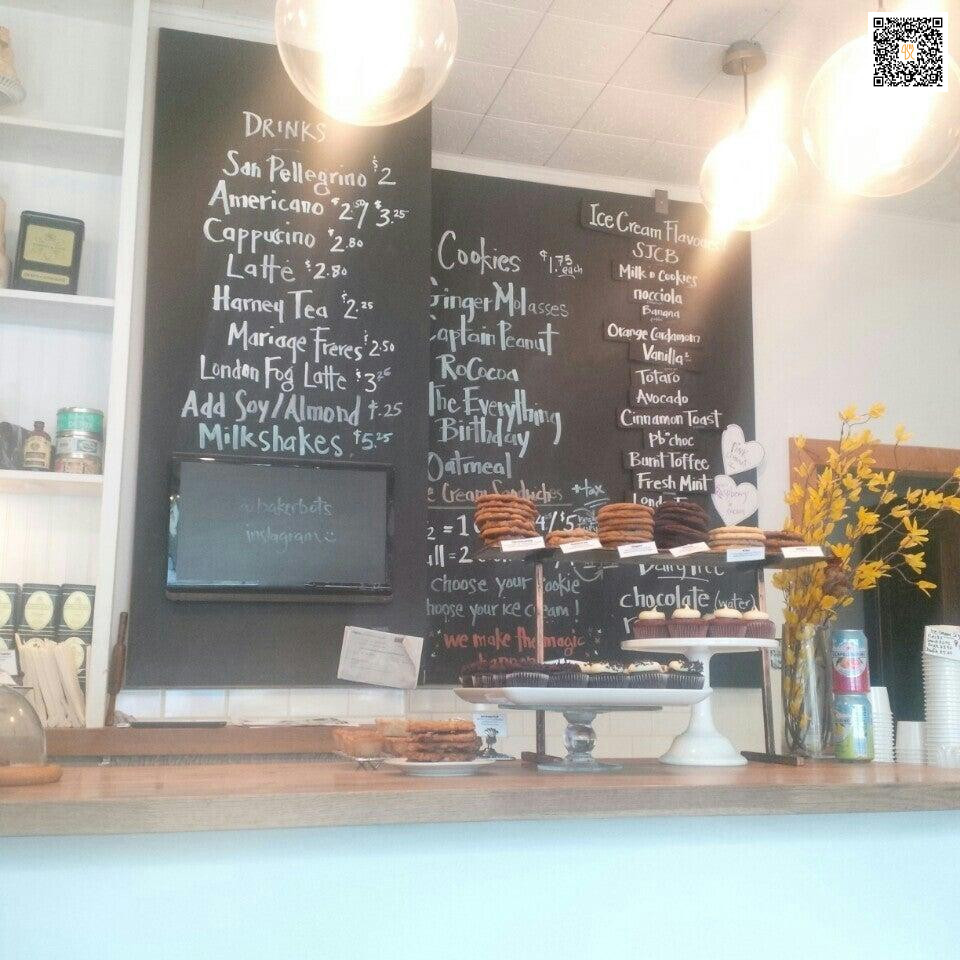 DRINKS
San Pellegrino $2
Americano $2.50/$3.25
Cappucino $2.80
Latte $2.80
Harney Tea $2.25
Mariage Freres $2.50
London Fog Latte $3.25
Add Soy/Almond $.25
Milkshakes $5.25
@bakerbots
instagram
Cookies $1.75 each
Ginger Molasses
Captain Peanut
RoCocoa
The Everything
Birthday
Oatmeal
Cream Sandwiches +tax
2 = 1
4/$5
= 2
choose your cookie
choose your ice cream!
we make the magic
happen
Ice Cream Flavours
SJCB
Milk n Cookies
nocciola
Banana
Orange Cardamom
Vanilla
Totaro
Avocado
Cinnamon Toast
pb"choc
Burnt Toffee
Fresh Mint
Pink
Raspberry
Dairy free
chocolate (water)